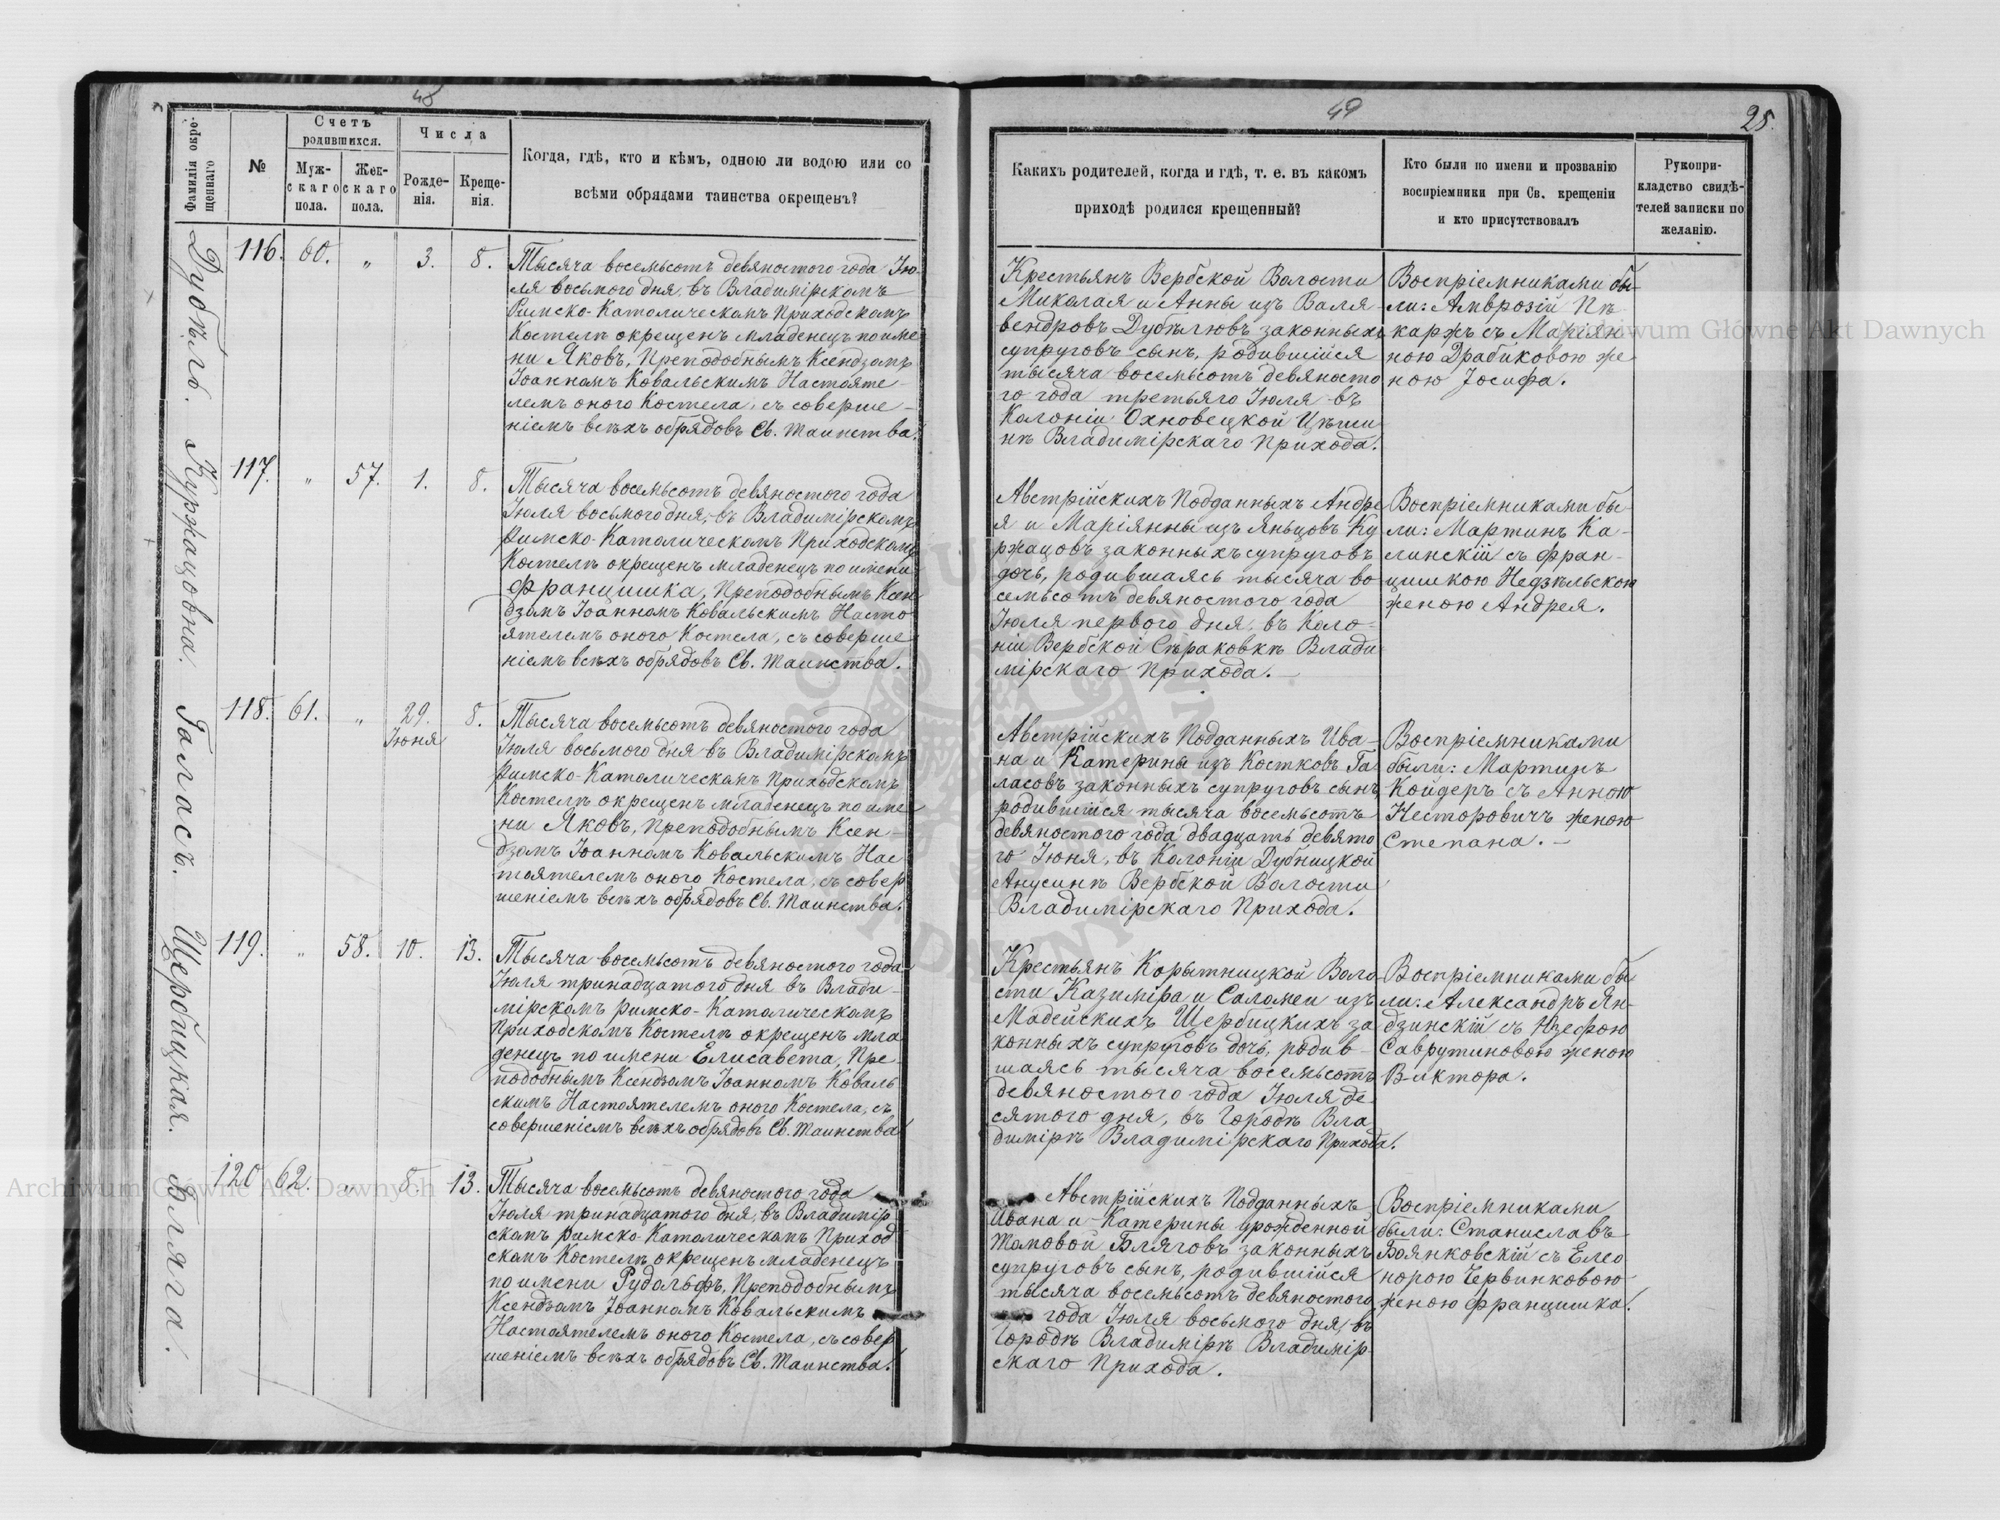 48
Фамилія окре-
щеннаго
№
Счетъ
родившихся.
Муж-
скаго
пола.
Жен-
скаго
пола.
Числа
Рожде-
нія.
Креще-
нія.
Когда, гдѣ, кто и кѣмъ, одною ли водою или со
всѣми обрядами таинства окрещенъ?
Дубѣль.
116. 60. " 3. 8.
Тысяча восемьсотъ девяностого года Ію-
ля восьмого дня, въ Владимірскомъ
Римско-Католическомъ Приходскомъ
Костелѣ окрещенъ младенецъ по име
ни Яковъ, Преподобнымъ Ксендзомъ
Іоанномъ Ковальскимъ Настояте-
лемъ оного Костела, съ соверше-
ніемъ всѣхъ обрядовъ Св. Таинства.
Куржацовна.
117. " 57. 1. 8.
Тысяча восемьсотъ девяностого года
Іюля восьмого дня, въ Владимірскомъ
Римско-Католическомъ Приходскомъ
Костелѣ окрещенъ младенецъ по имени
Францишка, Преподобнымъ Ксен
дзомъ Іоанномъ Ковальскимъ Насто
ятелемъ оного Костела, съ соверше
ніемъ всѣхъ обрядовъ Св. Таинства.
Галасъ.
118. 61. " 29. Іюня 8.
Тысяча восемьсотъ девяностого года
Іюля восьмого дня въ Владимірскомъ
Римско-Католическомъ Приходскомъ
Костелѣ окрещенъ младенецъ по име
ни Яковъ, Преподобнымъ Ксен-
дзомъ Іоанномъ Ковальскимъ Нас
тоятелемъ оного Костела, съ совер
шеніемъ всѣхъ обрядовъ Св. Таинства.
Щербицкая.
119. " 58. 10. 13.
Тысяча восемьсотъ девяностого года
Іюля тринадцатого дня въ Влади-
мірскомъ Римско-Католическомъ
Приходскомъ Костелѣ окрещенъ мла
денецъ по имени Елисавета, Пре-
подобнымъ Ксендзомъ Іоанномъ Коваль
скимъ Настоятелемъ оного Костела, съ
совершеніемъ всѣхъ обрядовъ Св. Таинства.
Бляга.
120 62. " 8. 13.
Тысяча восемьсотъ девяностого года
Іюля тринадцатого дня, въ Владимір
скомъ Римско-Католическомъ Приход
скомъ Костелѣ окрещенъ младенецъ
по имени Рудольфъ, Преподобнымъ
Ксендзомъ Іоанномъ Ковальскимъ
Настоятелемъ оного Костела, съ совер
шеніемъ всѣхъ обрядовъ Св. Таинства.
49
25.
Какихъ родителей, когда и гдѣ, т. е. въ какомъ
приходѣ родился крещенный?
Кто были по имени и прозванію
воспріемники при Св. крещеніи
и кто присутствовалъ
Рукопри-
кладство свидѣ-
телей записки по
желанію.
Крестьянъ Вербской Волости
Миколая и Анны изъ Валя
вендровъ Дубѣлювъ законныхъ
супруговъ сынъ, родившійся
тысяча восемьсотъ девяносто
го года третьяго Іюля въ
Колоніи Охновецкой Цѣши
нѣ Владимірскаго Прихода.
Воспріемниками бы-
ли: Амврозій Пѣ
каржъ съ Маріян
ною Драбиковою же
ною Іосифа.
Австрійскихъ Подданныхъ Андре
я и Маріянны изъ Яньцовъ Ку
ржацовъ законныхъ супруговъ
дочь, родившаясь тысяча во
семьсотъ девяностого года
Іюля первого дня, въ Коло-
ніи Вербской Сѣраковкѣ Влади
мірскаго Прихода.
Воспріемниками бы-
ли: Мартинъ Ка-
линскій съ Фран-
цишкою Недзѣльскою
женою Андрея.
Австрійскихъ Подданныхъ Ива-
на и Катерины изъ Костковъ Га
ласовъ законныхъ супруговъ сынъ,
родившійся тысяча восемьсотъ
девяностого года двадцать девято
го Іюня, въ Колоніи Дубницкой
Анусинѣ Вербской Волости
Владимірскаго Прихода.
Воспріемниками
были: Мартинъ
Койдеръ съ Анною
Несторовичъ женою
Степана.
Крестьянъ Корытницкой Воло
сти Казиміра и Саломеи изъ
Мадейскихъ Щербицкихъ за
конныхъ супруговъ дочь, родив-
шаясь тысяча восемьсотъ
девяностого года Іюля де-
сятого дня, въ Городѣ Вла
димірѣ Владимірскаго Прихода.
Воспріемниками бы
ли: Александръ Ян-
дзинскій съ Юзефою
Саврутиновою женою
Виктора.
Австрійскихъ Подданныхъ
Ивана и Катерины урожденной
Томовой Бляговъ законныхъ
супруговъ сынъ, родившійся
тысяча восемьсотъ девяностого
года Іюля восьмого дня, въ
Городѣ Владимірѣ Владимір
скаго Прихода.
Воспріемниками
были: Станиславъ
Боянковскій съ Елео
норою Червинковою
женою Францишка.
Archiwum Główne Akt Dawnych
Archiwum Główne Akt Dawnych